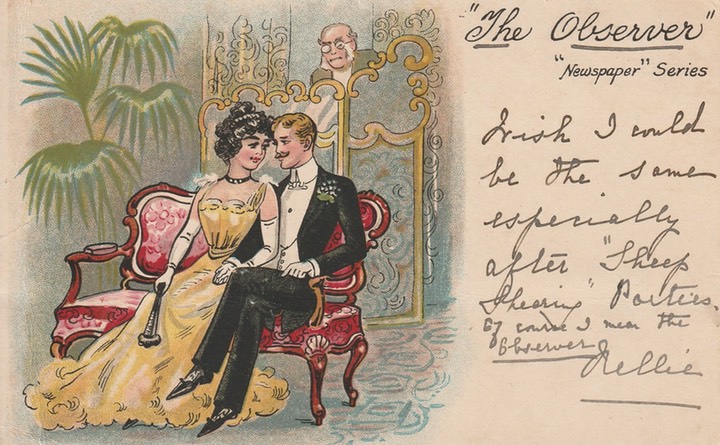 "The Observer"
"Newspaper" Series
Wish I could
be the same
especially
after "Sheep
Shearing" Parties
Of course I mean the
"Observer"
Nellie